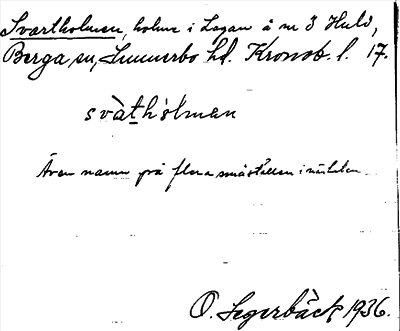 Svartholmen, holme i Lagan å nr 3 Hult,
Berga sn, Sunnerbo hd. Kronob. l. 17.
svàt̠hòlman
Även namn på flera småställen i närheten.
O. Segerbäck 1936.